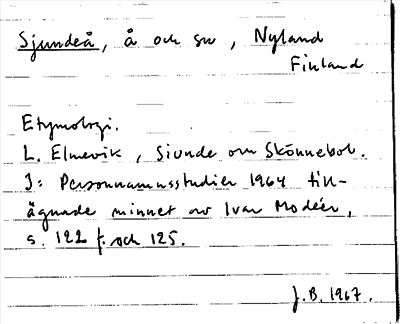 Sjundeå, å och sn, Nyland
Finland
Etymologi.
L. Elmevik, Siunde om Skönnebol.
I: Personnamnsstudier 1964 till-
ägnade minnet av Ivar Modéer,
s. 122 f. och 125.
J.B. 1967.